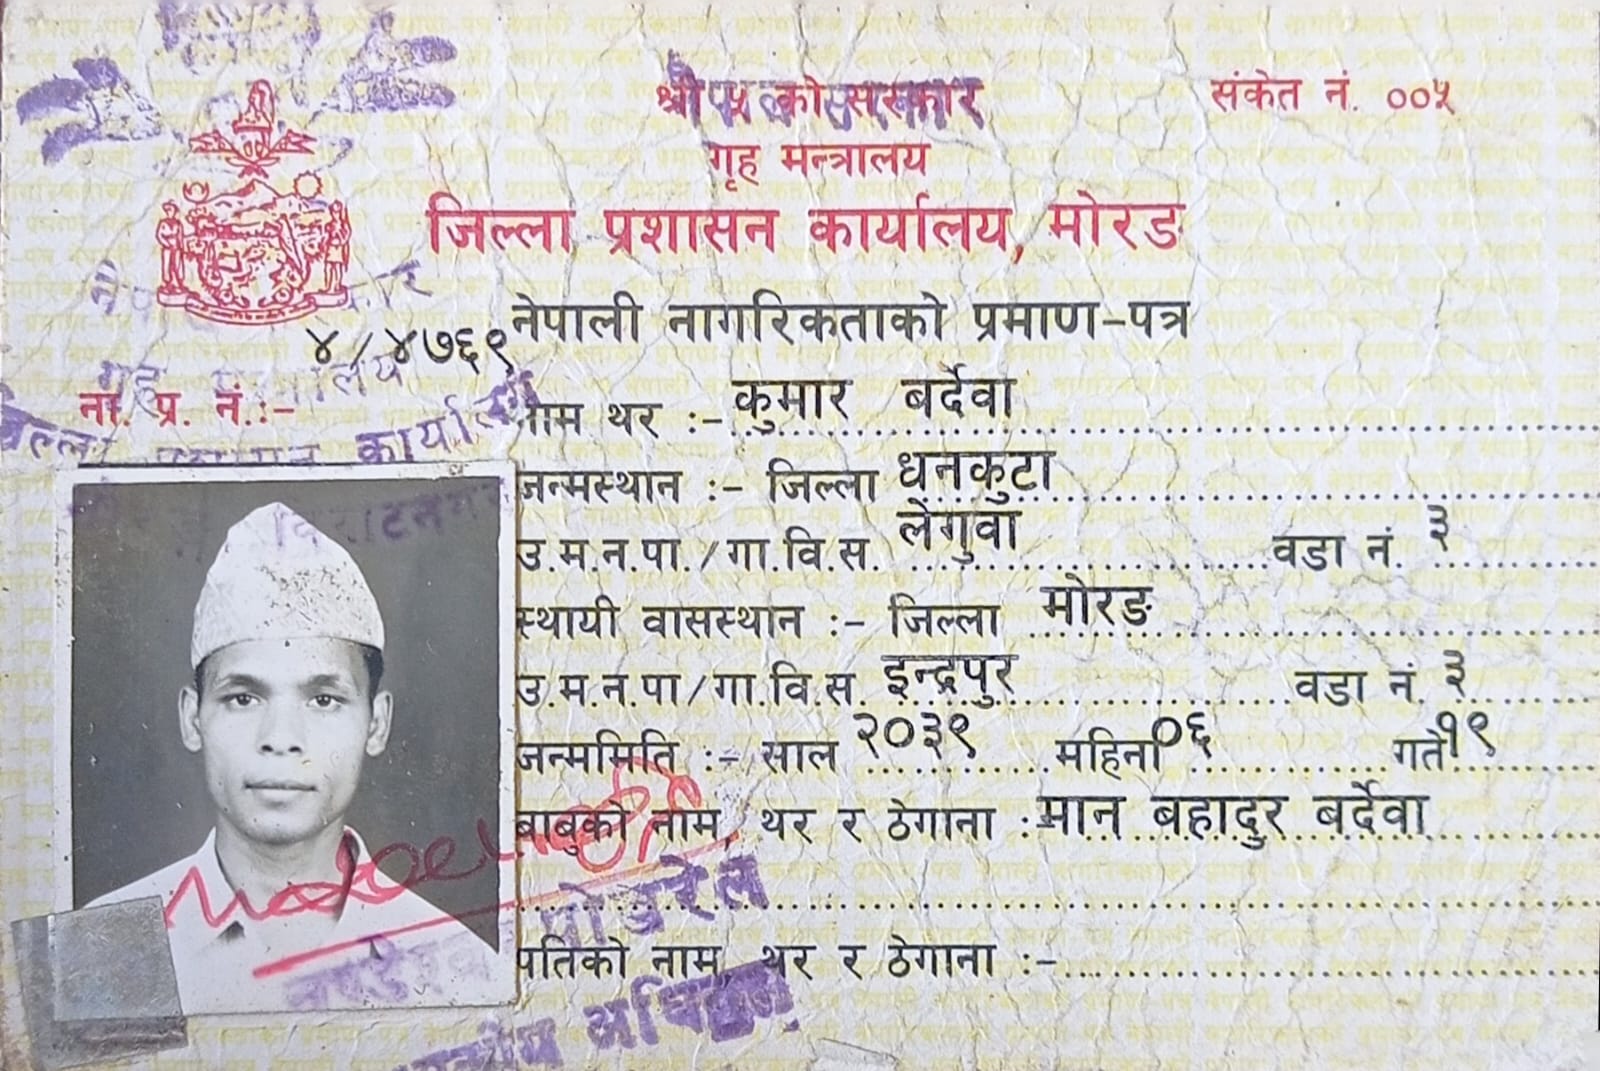 संकेत नं. ००५
श्री ५ को सरकार
गृह मन्त्रालय
जिल्ला प्रशासन कार्यालय, मोरङ
नेपाली नागरिकताको प्रमाण-पत्र
ना. प्र. नं.:- ४/४७६९
नाम थर :- कुमार बर्देवा
जन्मस्थान :- जिल्ला धनकुटा
उ.म.न.पा./गा.वि.स. लेगुवा वडा नं. ३
स्थायी वासस्थान :- जिल्ला मोरङ
उ.म.न.पा/गा.वि.स. इन्द्रपुर वडा नं. ३
जन्ममिति :- साल २०३९ महिना ०६ गते १९
बाबुको नाम, थर र ठेगाना :- मान बहादुर बर्देवा
पतिको नाम, थर र ठेगाना :-
कार्यालय
पौडेल
अधिकृत